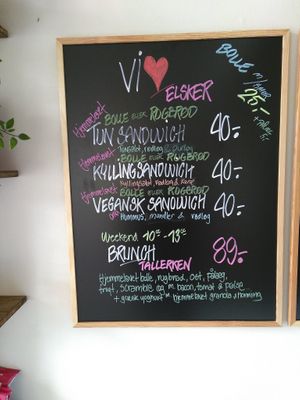 Vi ❤
ELSKER
BOLLE M/SMØR
25,-
Hjemmelavet
BOLLE ELLER RUGBRØD
TUN SANDWICH 40,-
Tunsalat, rødløg &
Hjemmelavet
BOLLE ELLER RUGBRØD
KYLLINGSANDWICH 40,-
Kyllingsalat, rødløg &
Hjemmelavet
BOLLE ELLER RUGBRØD
VEGANSK SANDWICH 40,-
Hummus, mandler & rødløg
Weekend 10:00 - 13:00
BRUNCH
TALLERKEN 89,-
Hjemmelavet bolle, rugbrød, ost, pålæg,
frugt, scramble æg m. bacon, tomat & pølse
+ græsk yoghurt m hjemmelavet granola & honning